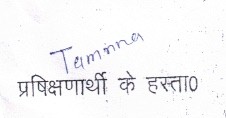 Tamanna
प्रषिक्षणार्थी के हस्ता0